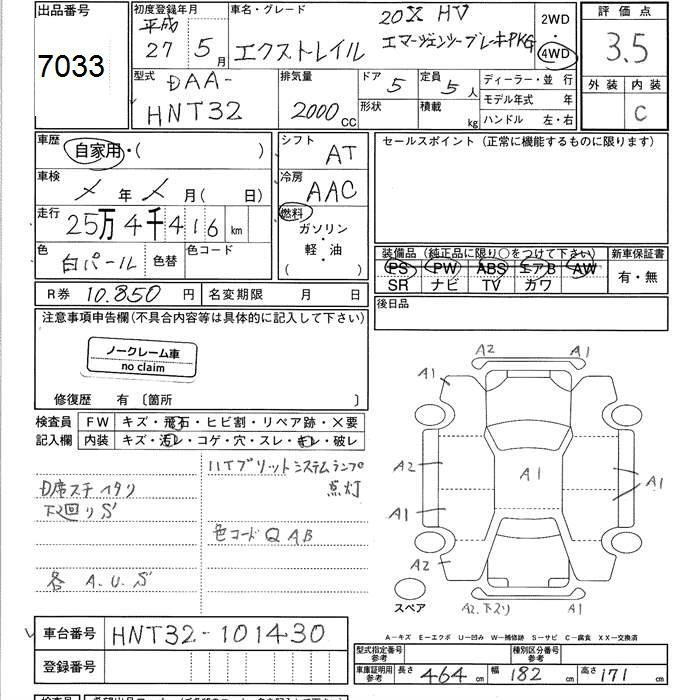 出品番号
7033
初度登録年月
平成
27 5月
車名・グレード
20X HV
エクストレイル エマージェンシーブレーキPKG
2WD
・
4WD
評価点
3.5
外装 内装
C
型式
DAA-
HNT32
排気量
2000 CC
ドア 5
定員 5人
形状
積載 kg
ディーラー・並行
モデル年式 年
ハンドル 左・右
車歴
自家用・( )
シフト
AT
セールスポイント (正常に機能するものに限ります)
車検
メ 年 メ 月( 日)
冷房
AAC
走行
25万4千416 km
燃料
ガソリン
・
軽・油
( )
色
白パール
色替
色コード
装備品 (純正品に限り○をつけて下さい)
新車保証書
PS PW ABS エアB AW
SR ナビ TV カワ
有・無
R券 10.850 円
名変期限 月 日
後日品
注意事項申告欄(不具合内容等は具体的に記入して下さい)
ノークレーム車
no claim
修復歴 有 〔箇所 〕
検査員
記入欄
FW キズ・飛石・ヒビ割・リペア跡・X要
内装 キズ・汚レ・コゲ・穴・スレ・キレ・破レ
ハイブリットシステムランプ
点灯
D席スチイタリ
下廻りS
色コードQAB
各 A.U.S
A2 A1
A1 A1
A2 A1 A1
A1
A2
A2.下スリ A1
スペア
A-キズ E-エクボ U-凹み W-補修跡 S-サビ C-腐食 XX-交換済
車台番号 HNT32-101430
登録番号
型式指定番号
参考
種別区分番号
参考
車庫証明用
参考
長さ 464 cm 幅 182 cm 高さ 171 cm